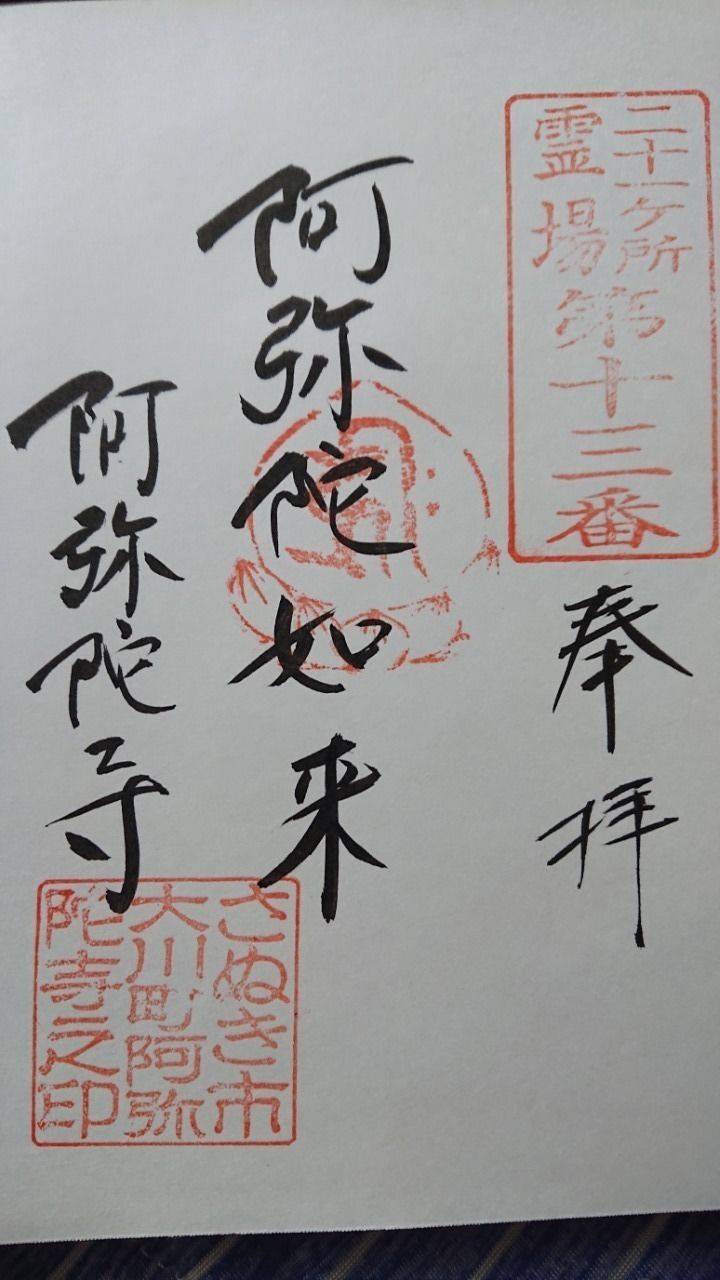 二十一ヶ所
霊場第十三番
奉拝
阿弥陀如来
阿弥陀寺
さぬき市
大川町阿弥
陀寺之印